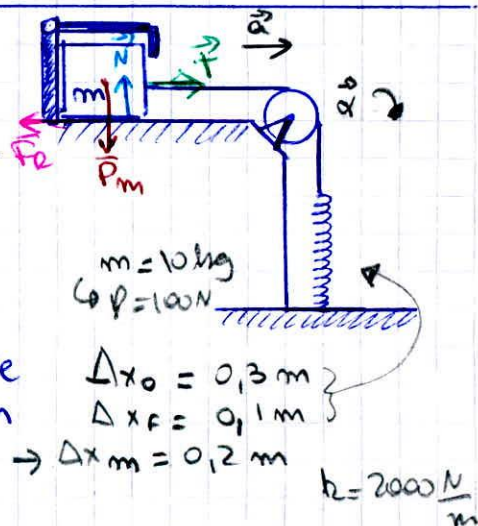 a⃗
N⃗
T⃗
m
α⃗
F⃗R
P⃗m
m = 10 kg
↳ P = 100 N
e Δx₀ = 0,3 m
n ΔxF = 0,1 m
→ Δxm = 0,2 m
k = 2000 N/m